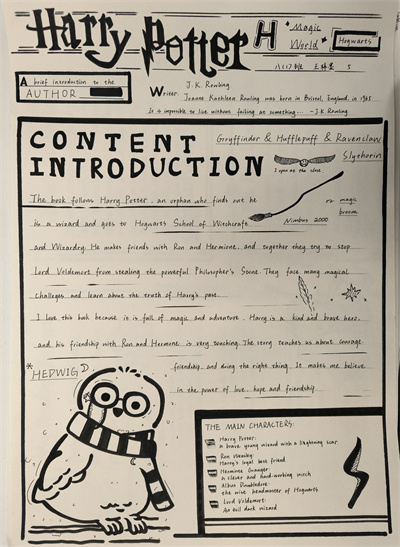 Harry Potter
H
"Magic World"
Hogwarts
八(1)班 5
A brief introduction to the
AUTHOR
J.K. Rowling
Writer: Joanne Kathleen Rowling was born in Bristol, England, in 1965
It is impossible to live without failing at something... —J.K Rowling
CONTENT
INTRODUCTION
Gryffindor & Hufflepuff & Ravenclaw
Slytherin
I open at the close
The book follows Harry Potter, an orphan who finds out he
magic
broom
is a wizard and goes to Hogwarts School of Witchcraft
Nimbus 2000
and Wizardry. He makes friends with Ron and Hermione, and together they try to stop
Lord Voldemort from stealing the powerful Philosopher's Stone. They face many magical
challeges and learn about the truth of Harry's past.
I love this book because it is full of magic and adventure. Harry is a kind and brave hero,
and his friendship with Ron and Hermione is very touching. The story teaches us about courage,
*HEDWIG
friendship, and doing the right thing. It makes me believe
in the power of love, hope and friendship.
THE MAIN CHARACTERS:
Harry Potter:
a brave young wizard with a lightning scar
Ron Weasley:
Harry's loyal best friend
Hermione Granger:
a clever and hard-working witch
Albus Dumbledore:
the wise headmaster of Hogwarts
Lord Voldemort:
An evil dark wizard